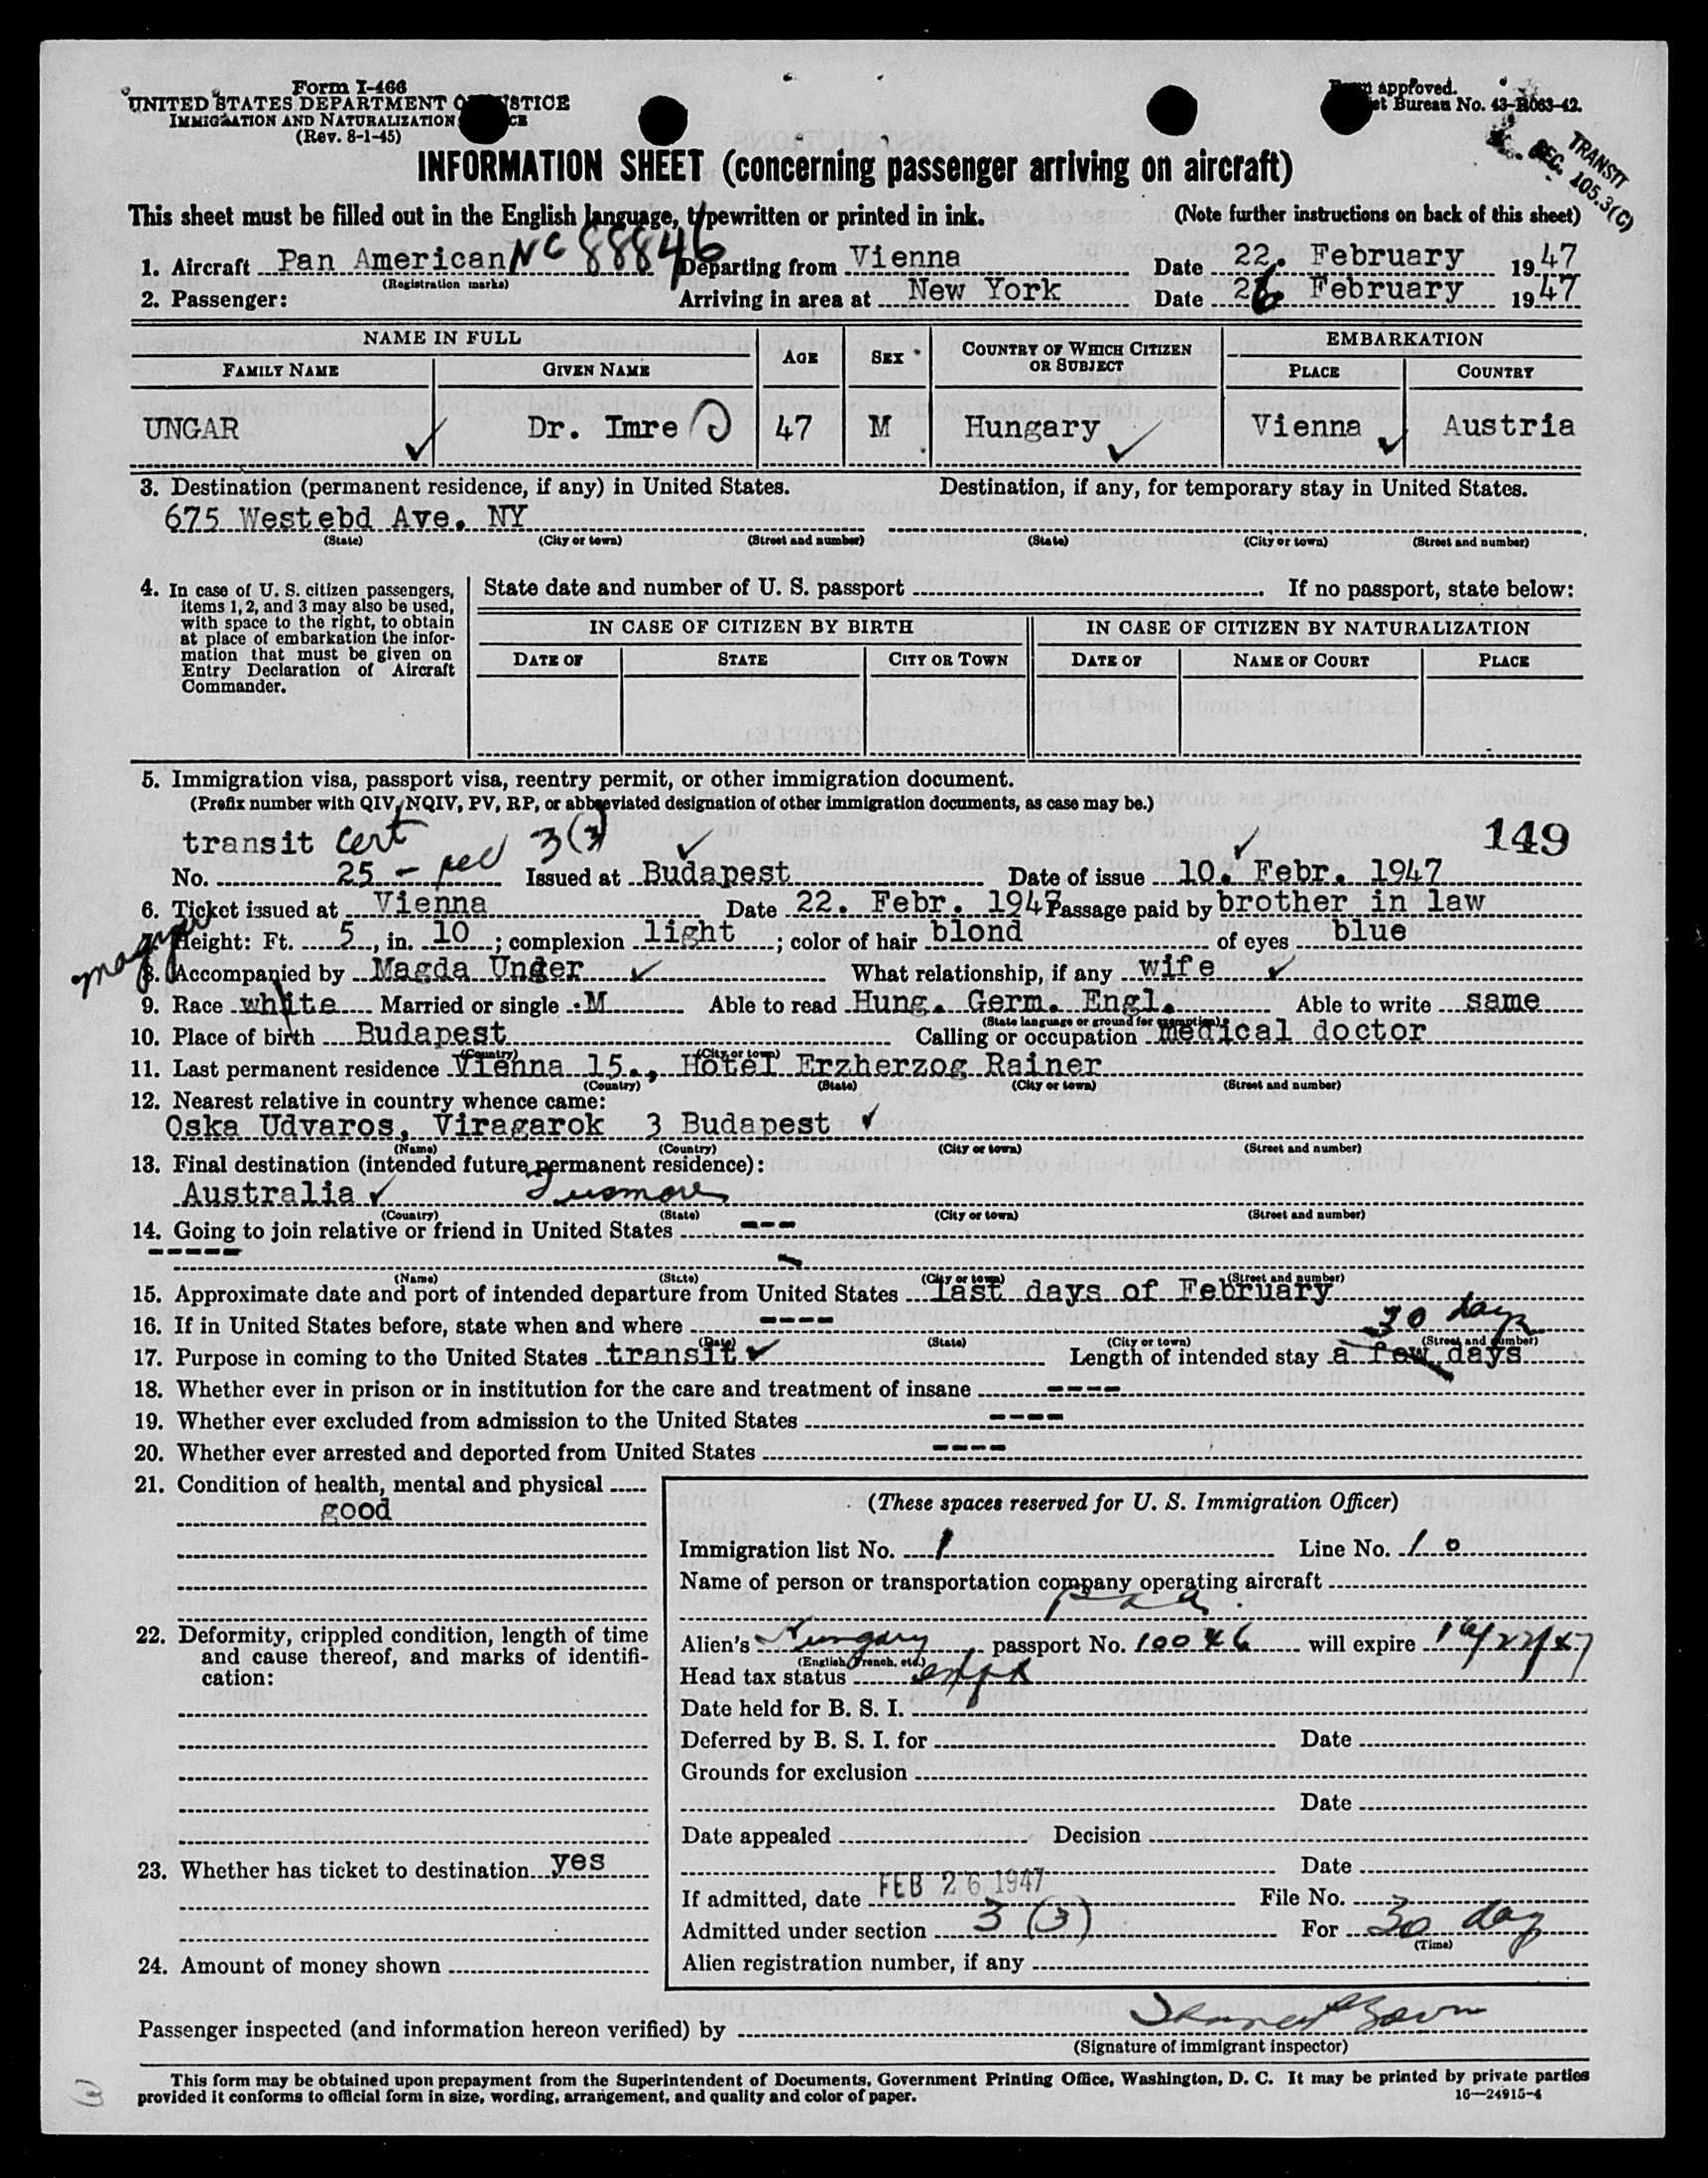 Form I-466
UNITED STATES DEPARTMENT OF JUSTICE
IMMIGRATION AND NATURALIZATION
(Rev. 8-1-45)
Form approved.
Budget Bureau No. 43-R063-42.
TRANSIT
SEC. 105.3(C)
INFORMATION SHEET (concerning passenger arriving on aircraft)
This sheet must be filled out in the English language, typewritten or printed in ink. (Note further instructions on back of this sheet)
1. Aircraft Pan American NC 88846 Departing from Vienna Date 22. February 1947
(Registration marks)
2. Passenger: Arriving in area at New York Date 26 February 1947
NAME IN FULL AGE SEX COUNTRY OF WHICH CITIZEN OR SUBJECT EMBARKATION
FAMILY NAME GIVEN NAME PLACE COUNTRY
UNGAR Dr. Imre 47 M Hungary Vienna Austria
3. Destination (permanent residence, if any) in United States. Destination, if any, for temporary stay in United States.
675 Westebd Ave. NY
(State) (City or town) (Street and number) (State) (City or town) (Street and number)
4. In case of U. S. citizen passengers, items 1, 2, and 3 may also be used, with space to the right, to obtain at place of embarkation the information that must be given on Entry Declaration of Aircraft Commander.
State date and number of U. S. passport If no passport, state below:
IN CASE OF CITIZEN BY BIRTH IN CASE OF CITIZEN BY NATURALIZATION
DATE OF STATE CITY OR TOWN DATE OF NAME OF COURT PLACE
5. Immigration visa, passport visa, reentry permit, or other immigration document.
(Prefix number with QIV, NQIV, PV, RP, or abbreviated designation of other immigration documents, as case may be.)
transit cert 3(3) 149
No. 25 - Issued at Budapest Date of issue 10. Febr. 1947
6. Ticket issued at Vienna Date 22. Febr. 1947 Passage paid by brother in law
7. Height: Ft. 5, in. 10; complexion light; color of hair blond of eyes blue
magyar
8. Accompanied by Magda Unger What relationship, if any wife
9. Race white Married or single :M Able to read Hung. Germ. Engl. Able to write same
(State language or ground for exemption)
10. Place of birth Budapest Calling or occupation medical doctor
(Country) (City or town)
11. Last permanent residence Vienna 15., Hotel Erzherzog Rainer
(Country) (State) (City or town) (Street and number)
12. Nearest relative in country whence came:
Oska Udvaros, Viragarok 3 Budapest
(Name) (Country) (City or town) (Street and number)
13. Final destination (intended future permanent residence):
Australia
(Country) (State) (City or town) (Street and number)
14. Going to join relative or friend in United States ---
-----
(Name) (State) (City or town) (Street and number)
15. Approximate date and port of intended departure from United States last days of February
16. If in United States before, state when and where ----
(Date) (State) (City or town) (Street and number)
30 days
17. Purpose in coming to the United States transit Length of intended stay a few days
18. Whether ever in prison or in institution for the care and treatment of insane ----
19. Whether ever excluded from admission to the United States ----
20. Whether ever arrested and deported from United States ----
21. Condition of health, mental and physical
good
22. Deformity, crippled condition, length of time and cause thereof, and marks of identification:
23. Whether has ticket to destination yes
24. Amount of money shown
(These spaces reserved for U. S. Immigration Officer)
Immigration list No. 1 Line No. 10
Name of person or transportation company operating aircraft
paa.
Alien's Hungary passport No. 10046 will expire
(English, French, etc.)
Head tax status
Date held for B. S. I.
Deferred by B. S. I. for Date
Grounds for exclusion
Date
Date appealed Decision
Date
If admitted, date FEB 26 1947 File No.
Admitted under section 3 (3) For 30 day
(Time)
Alien registration number, if any
Passenger inspected (and information hereon verified) by
(Signature of immigrant inspector)
This form may be obtained upon prepayment from the Superintendent of Documents, Government Printing Office, Washington, D. C. It may be printed by private parties
provided it conforms to official form in size, wording, arrangement, and quality and color of paper. 16—24915-4